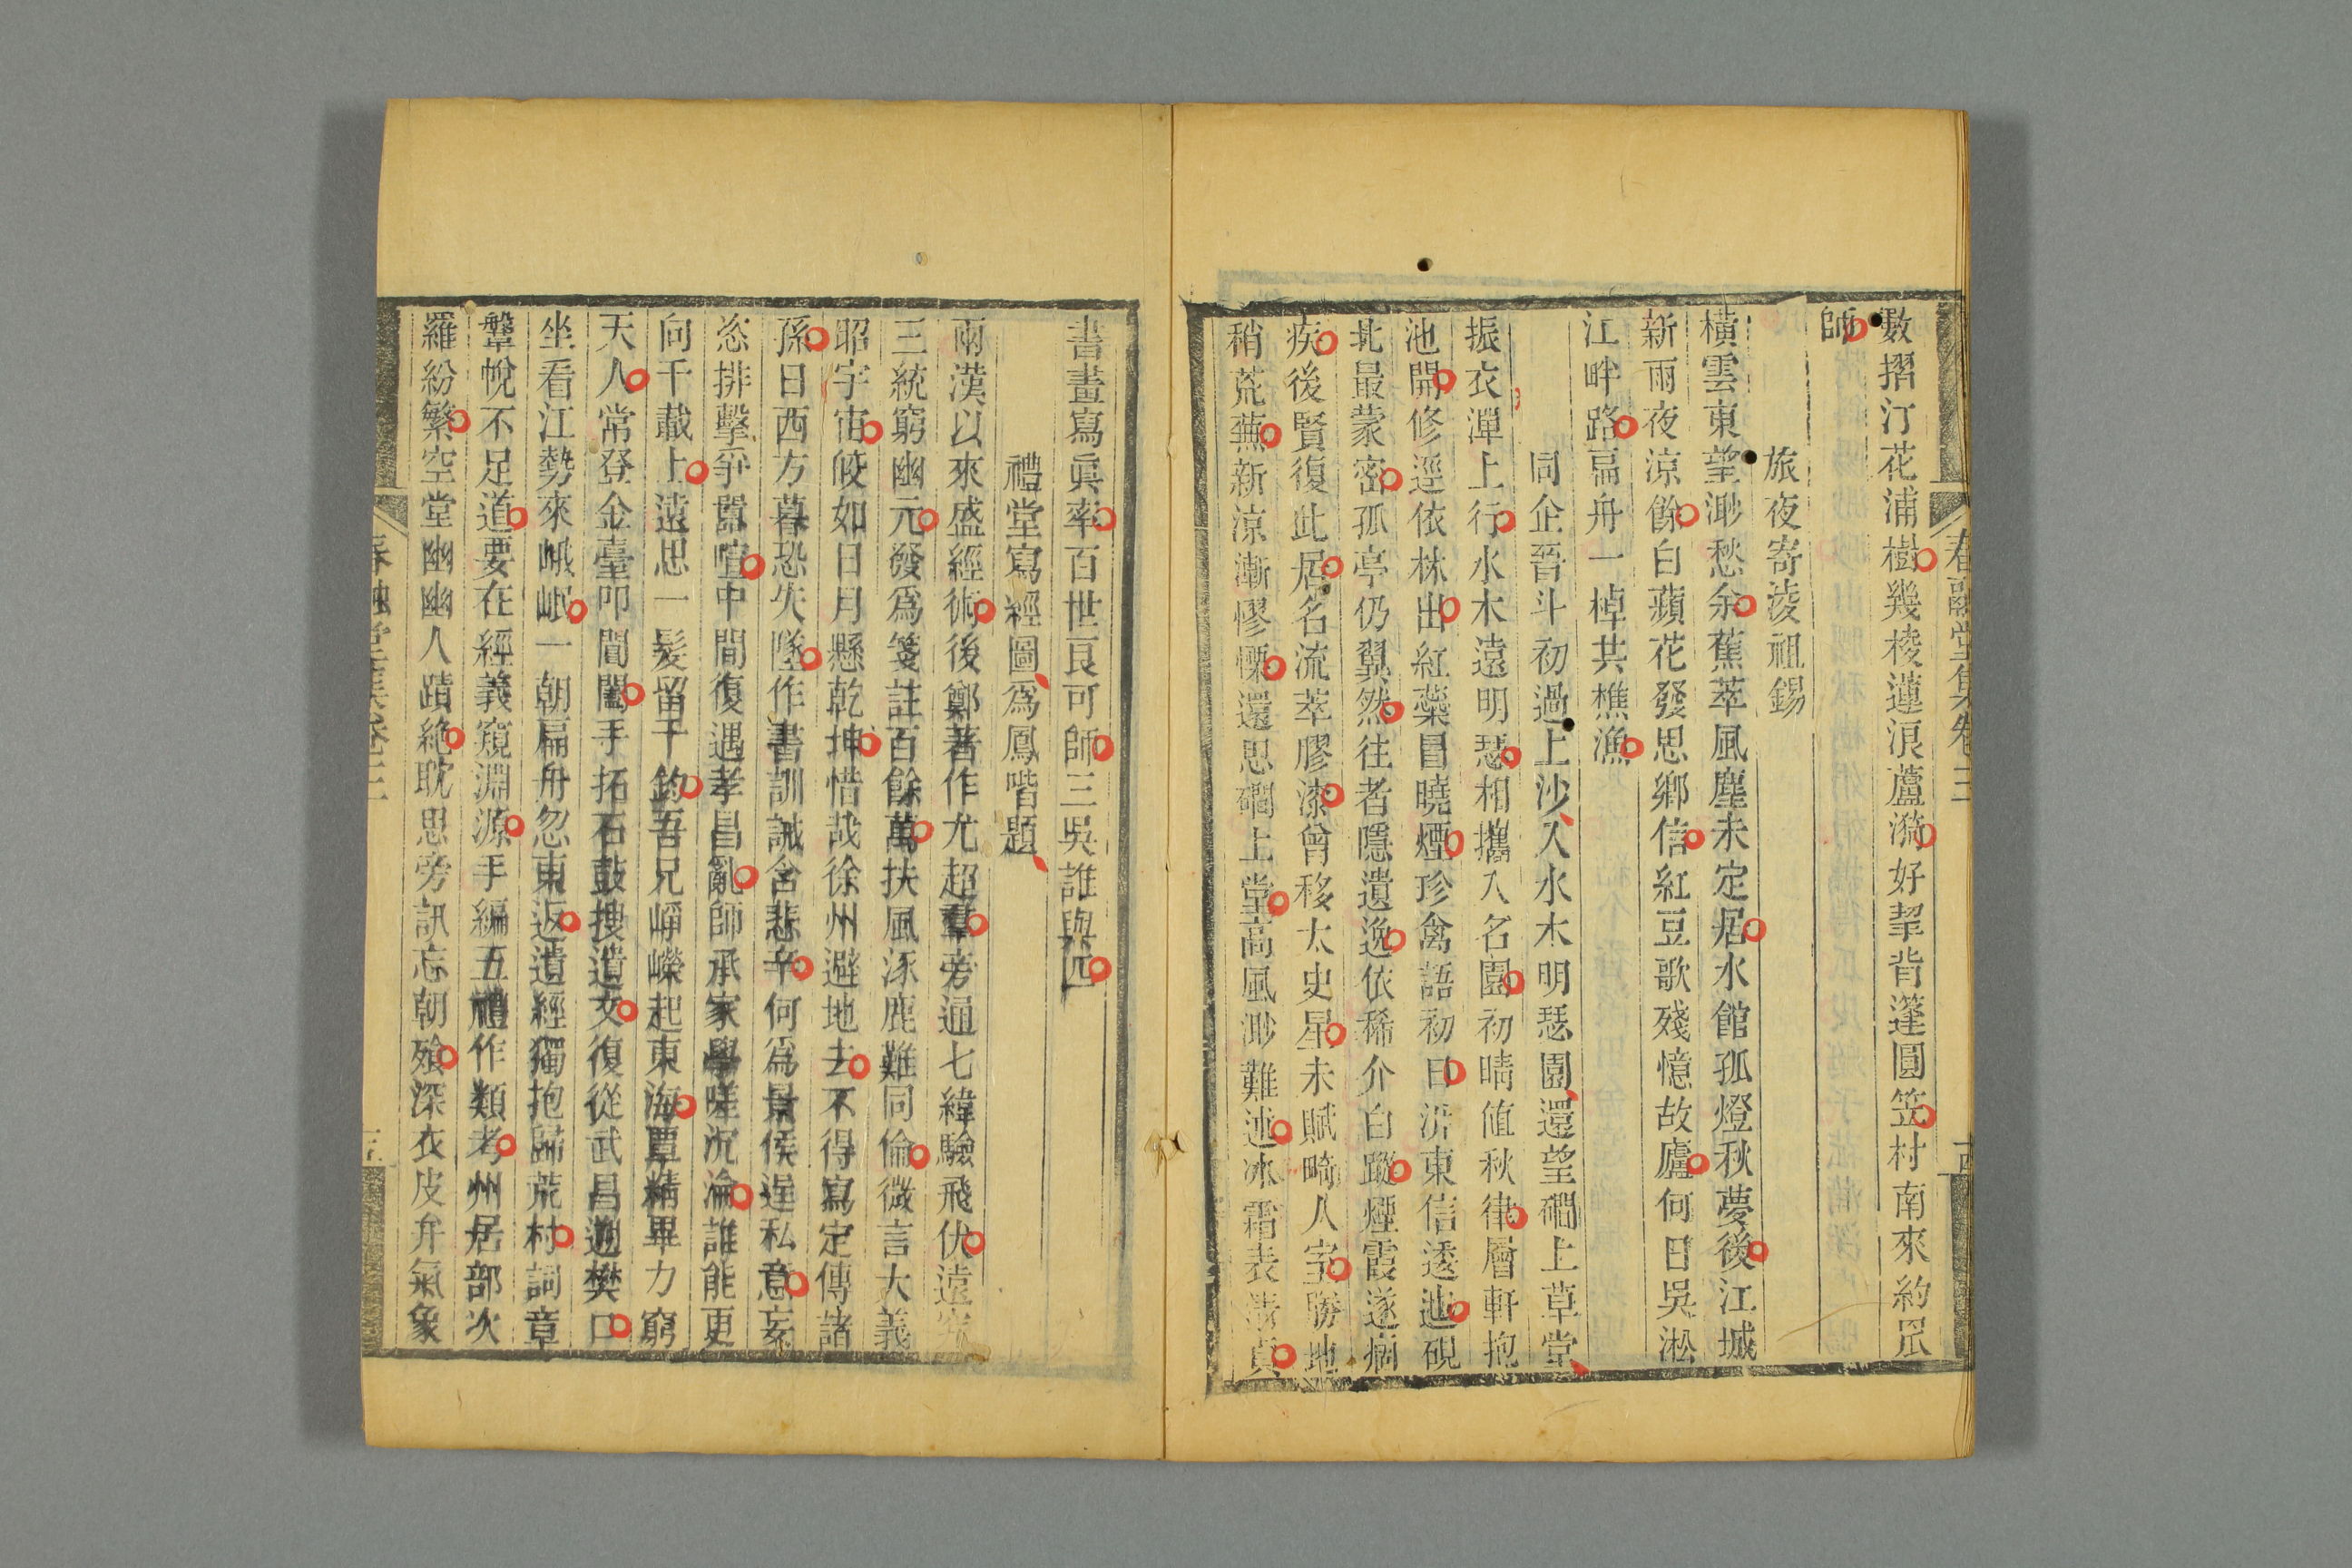 春融堂集卷三
數摺汀花浦樹幾棱蓮浪蘆漪好挈背篷圓笠村南來約罛
師
旅夜寄淩祖錫
橫雲東望渺愁余蕉萃風塵未定居水館孤燈秋夢後江城
新雨夜涼餘白蘋花發思鄉信紅豆歌殘憶故廬何日吳淞
江畔路扁舟一棹共樵漁
同企晉斗初過上沙入水木明瑟園還望磵上草堂
振衣潬上行水木遠明瑟相攜入名園初晴値秋律層軒抱
池開修逕依林出紅蘂冒曉煙珍禽語初日沜東信逶迆硯
北最蒙密孤亭仍翼然往者隱遺逸依稀介白蹤煙霞遂痼
疾後賢復此居名流萃膠漆曾移太史星未賦畸人室勝地
稍荒蕪新涼漸憀慄還思磵上堂高風渺難述冰霜表淸貞
書畫寫眞率百世良可師三吳誰與匹
禮堂寫經圖爲鳳喈題
兩漢以來盛經術後鄭著作尤超羣旁通七緯驗飛伏遠
三統窮幽元發爲箋註百餘萬扶風涿鹿難同倫微言大義
昭宇宙皎如日月懸乾坤惜哉徐州避地去不得寫定傳諸
孫日西方暮恐失墜作書訓誡含悲辛何爲景侯逞私意妄
恣排擊爭嚣喧中間復遇孝昌亂師師承家學嗟沉淪誰能更
向千載上遠思一髮留千鈞吾兄崢嶸起東海覃精畢力窮
天人常登金臺叩閶闔手拓石鼓搜遺文復從武昌遡樊口
坐看江勢來峨岷一朝扁舟忽東返遺經獨抱歸荒村詞章
鞶帨不足道要在經義窺淵源手編五禮作類考州居部次
羅紛繁空堂幽幽人蹟絶耽思旁訊忘朝飱深衣皮弁氣象
春融堂集卷三